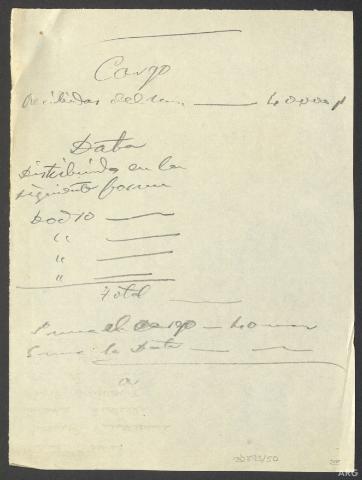 Cargo
Recibidas del — 40000 p
Data
Distribuidas en la
siguiente forma
Dado 10 —
" —
" —
" —
Total —
Suma el cargo — 40
Suma la Data — —
ARG